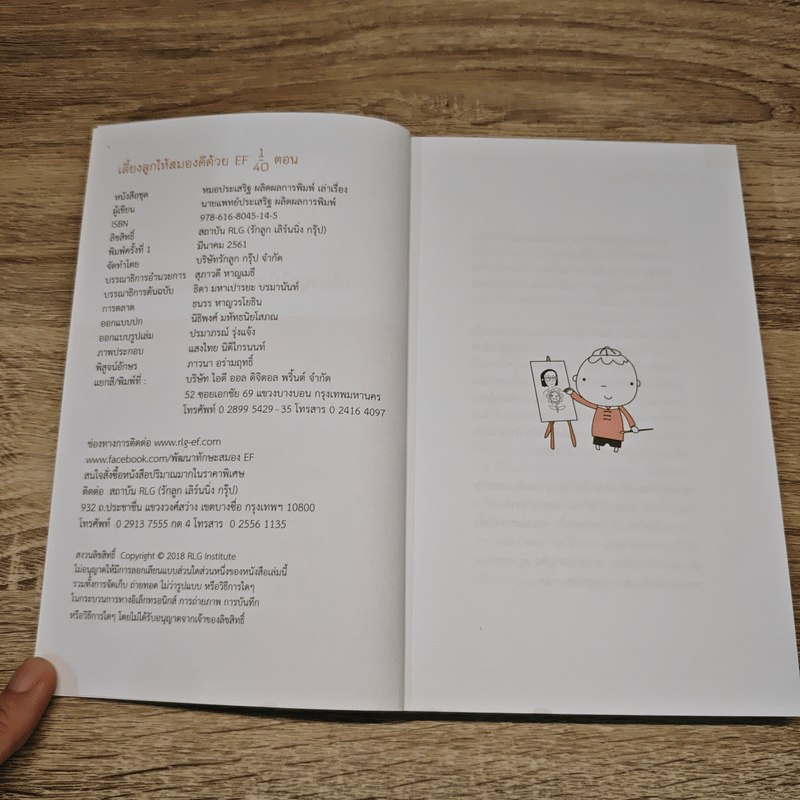 เลี้ยงลูกให้สมองดีด้วย EF 1/40 ตอน
หนังสือชุด หมอประเสริฐ ผลิตผลการพิมพ์ เล่าเรื่อง
ผู้เขียน นายแพทย์ประเสริฐ ผลิตผลการพิมพ์
ISBN 978-616-8045-14-5
ลิขสิทธิ์ สถาบัน RLG (รักลูก เลิร์นนิ่ง กรุ๊ป)
พิมพ์ครั้งที่ 1 มีนาคม 2561
จัดทำโดย บริษัทรักลูก กรุ๊ป จำกัด
บรรณาธิการอำนวยการ สุภาวดี หาญเมธี
บรรณาธิการต้นฉบับ ธิดา มหาเปารยะ บรมานันท์
การตลาด ธนรร หาญวรโยธิน
ออกแบบปก นิธิพงศ์ มหัทธนิยโสภณ
ออกแบบรูปเล่ม ปรมาภรณ์ รุ่งแจ้ง
ภาพประกอบ แสงไทย นิติไกรนนท์
พิสูจน์อักษร ภาวนา อร่ามฤทธิ์
แยกสี/พิมพ์ที่ : บริษัท ไอดี ออล ดิจิตอล พริ้นต์ จำกัด
52 ซอยเอกชัย 69 แขวงบางบอน กรุงเทพมหานคร
โทรศัพท์ 0 2899 5429 - 35 โทรสาร 0 2416 4097
ช่องทางการติดต่อ www.rlg-ef.com
www.facebook.com/พัฒนาทักษะสมอง EF
สนใจสั่งซื้อหนังสือปริมาณมากในราคาพิเศษ
ติดต่อ สถาบัน RLG (รักลูก เลิร์นนิ่ง กรุ๊ป)
932 ถ.ประชาชื่น แขวงวงศ์สว่าง เขตบางซื่อ กรุงเทพฯ 10800
โทรศัพท์ 0 2913 7555 กด 4 โทรสาร 0 2556 1135
สงวนลิขสิทธิ์ Copyright © 2018 RLG Institute
ไม่อนุญาตให้มีการลอกเลียนแบบส่วนใดส่วนหนึ่งของหนังสือเล่มนี้
รวมทั้งการจัดเก็บ ถ่ายทอด ไม่ว่ารูปแบบ หรือวิธีการใดๆ
ในกระบวนการทางอิเล็กทรอนิกส์ การถ่ายภาพ การบันทึก
หรือวิธีการใดๆ โดยไม่ได้รับอนุญาตจากเจ้าของลิขสิทธิ์